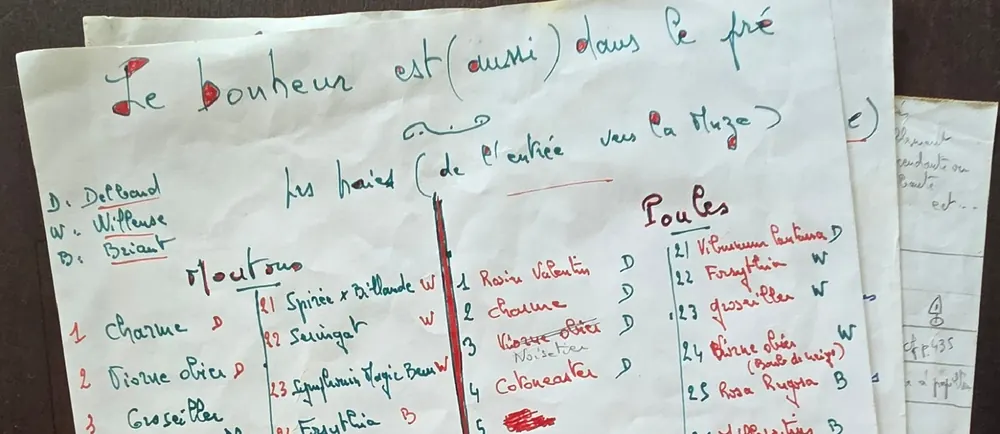 Le bonheur est (aussi) dans le pré
Les haies (de l'entrée vers la Muze)
D. Delbard
W. Willemse
B. Briant
Moutons
1 Charme D
2 Viorne obier D
3 Groseiller
21 Spirée x Billarde W
22 Seringat W
23 Magic Berry W
Forsythia B
Poules
1 Rosier Valentin D
2 Charme D
3 Viorne obier D
Noisetier
4 Cotoneaster D
5
21 Viburnum lantana D
22 Forsythia W
23 groseiller W
24 Viorne obier W
(Boule de neige)
25 Rosa Rugosa B
B
e)
est...
p. 435